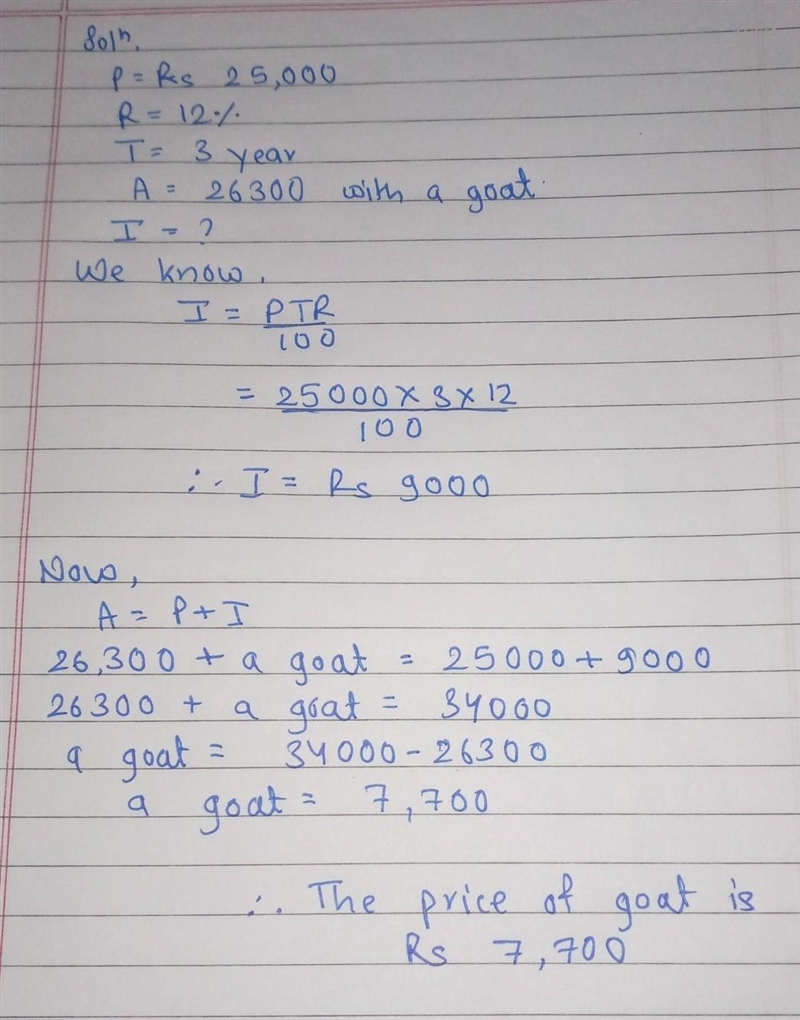 Solⁿ.
P = Rs 25,000
R = 12%
T = 3 year
A = 26300 with a goat.
I = ?
We know,
I = PTR
100
= 25000 × 3 × 12
100
∴ I = Rs 9000
Now,
A = P + I
26,300 + a goat = 25000 + 9000
26300 + a goat = 34000
a goat = 34000 - 26300
a goat = 7,700
∴ The price of goat is
Rs 7,700